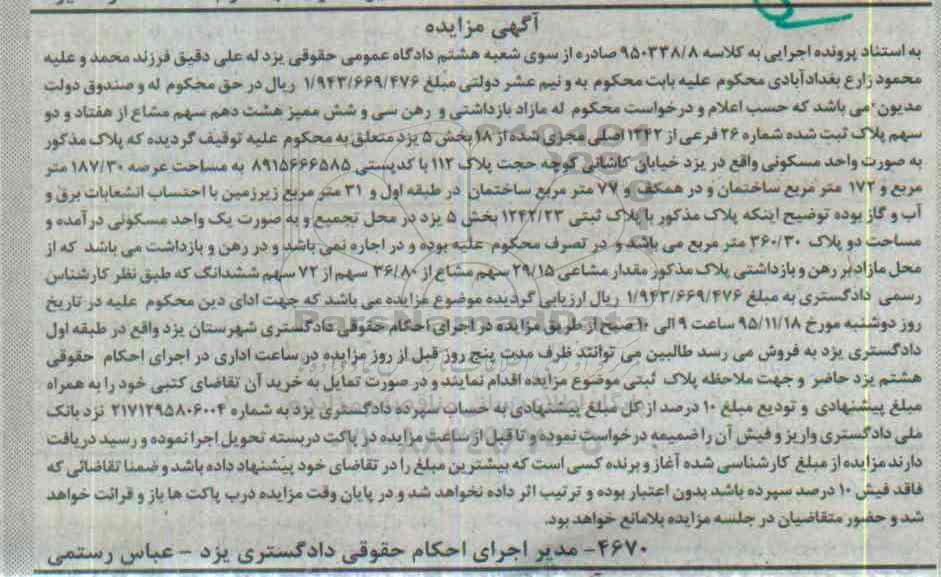 آگهی مزایده
به استناد پرونده اجرایی به کلاسه ۹۵۰۳۳۸/۸ صادره از سوی شعبه هشتم دادگاه عمومی حقوقی یزد له علی دقیق فرزند محمد و علیه
محمود زارع بغدادآبادی محکوم علیه بابت محکوم به و نیم عشر دولتی مبلغ ۱/۹۴۳/۶۶۹/۴۷۶ ریال در حق محکوم له و صندوق دولت
مدیون می باشد که حسب اعلام و درخواست محکوم له مازاد بازداشتی و رهن سی و شش ممیز هشت دهم سهم مشاع از هفتاد و دو
سهم پلاک ثبت شده شماره ۲۶ فرعی از ۱۲۴۲ اصلی مجزی شده از ۱۸ بخش ۵ یزد متعلق به محکوم علیه توقیف گردیده که پلاک مذکور
به صورت واحد مسکونی واقع در یزد خیابان کاشانی کوچه حجت پلاک ۱۱۲ با کدپستی ۸۹۱۵۶۶۶۵۸۵ به مساحت عرصه ۱۸۷/۳۰ متر
مربع و ۱۷۲ متر مربع ساختمان و در همکف و ۷۷ متر مربع ساختمان در طبقه اول و ۳۱ متر مربع زیرزمین با احتساب انشعابات برق و
آب و گاز بوده توضیح اینکه پلاک مذکور با پلاک ثبتی ۱۲۴۲/۲۳ بخش ۵ یزد در محل تجمیع و به صورت یک واحد مسکونی در آمده و
مساحت دو پلاک ۳۶۰/۳۰ متر مربع می باشد و در تصرف محکوم علیه بوده و در اجاره نمی باشد و در رهن و بازداشت می باشد که از
محل مازاد بر رهن و بازداشتی پلاک مذکور مقدار مشاعی ۲۹/۱۵ سهم مشاع از ۳۶/۸۰ سهم از ۷۲ سهم ششدانگ که طبق نظر کارشناس
رسمی دادگستری به مبلغ ۱/۹۴۳/۶۶۹/۴۷۶ ریال ارزیابی گردیده موضوع مزایده می باشد که جهت ادای دین محکوم علیه در تاریخ
روز دوشنبه مورخ ۹۵/۱۱/۱۸ ساعت ۹ الی ۱۰ صبح از طریق مزایده در اجرای احکام حقوقی دادگستری شهرستان یزد واقع در طبقه اول
دادگستری یزد به فروش می رسد طالبین می توانند ظرف مدت پنج روز قبل از روز مزایده در ساعت اداری در اجرای احکام حقوقی
هشتم یزد حاضر و جهت ملاحظه پلاک ثبتی موضوع مزایده اقدام نمایند و در صورت تمایل به خرید آن تقاضای کتبی خود را به همراه
مبلغ پیشنهادی و تودیع مبلغ ۱۰ درصد از کل مبلغ پیشنهادی به حساب سپرده دادگستری یزد به شماره ۲۱۷۱۲۹۵۸۰۶۰۰۴ نزد بانک
ملی دادگستری واریز و فیش آن را ضمیمه درخواست نموده و تا قبل از ساعت مزایده در پاکت دربسته تحویل اجرا نموده و رسید دریافت
دارند مزایده از مبلغ کارشناسی شده آغاز و برنده کسی است که بیشترین مبلغ را در تقاضای خود پیشنهاد داده باشد و ضمنا تقاضائی که
فاقد فیش ۱۰ درصد سپرده باشد بدون اعتبار بوده و ترتیب اثر داده نخواهد شد و در پایان وقت مزایده درب پاکت ها باز و قرائت خواهد
شد و حضور متقاضیان در جلسه مزایده بلامانع خواهد بود.
۴۶۷۰- مدیر اجرای احکام حقوقی دادگستری یزد - عباس رستمی
ParsNamadData